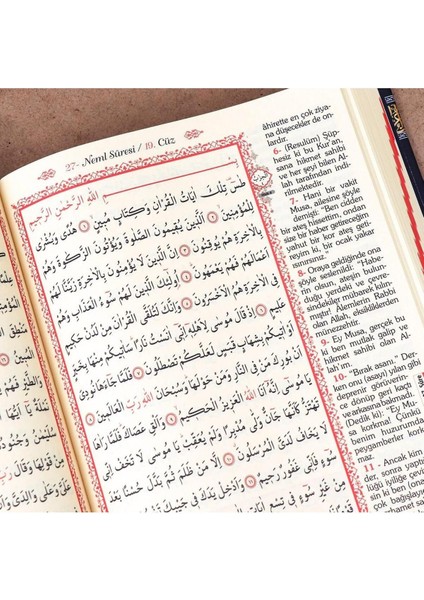 27- Neml Sûresi / 19. Cüz
اللّٰهِ الرَّحْمٰنِ الرَّحِيمِ
طٰسٓ تِلْكَ اٰيَاتُ الْقُرْاٰنِ وَكِتَابٍ مُبِينٍ ﴿١﴾ هُدًى وَبُشْرٰى
لِلْمُؤْمِنِينَ ﴿٢﴾ اَلَّذِينَ يُقِيمُونَ الصَّلٰوةَ وَيُؤْتُونَ الزَّكٰوةَ وَهُمْ
بِالْاٰخِرَةِ هُمْ يُوقِنُونَ ﴿٣﴾ اِنَّ الَّذِينَ لَا يُؤْمِنُونَ بِالْاٰخِرَةِ زَيَّنَّا لَهُمْ
اَعْمَالَهُمْ فَهُمْ يَعْمَهُونَ ﴿٤﴾ اُو۬لٰٓئِكَ الَّذِينَ لَهُمْ سُٓوءُ الْعَذَابِ وَهُمْ
فِي الْاٰخِرَةِ هُمُ الْاَخْسَرُونَ ﴿٥﴾ وَاِنَّكَ لَتُلَقَّى الْقُرْاٰنَ مِنْ لَدُنْ حَكِيمٍ
عَلِيمٍ ﴿٦﴾ اِذْ قَالَ مُوسٰى لِاَهْلِهٖٓ اِنِّٓي اٰنَسْتُ نَارًا سَاٰتِيكُمْ مِنْهَا بِخَبَرٍ
اَوْ اٰتِيكُمْ بِشِهَابٍ قَبَسٍ لَعَلَّكُمْ تَصْطَلُونَ ﴿٧﴾ فَلَمَّا جَٓاءَهَا نُودِيَ
اَنْ بُورِكَ مَنْ فِي النَّارِ وَمَنْ حَوْلَهَا وَسُبْحَانَ اللّٰهِ رَبِّ الْعَالَمِينَ ﴿٨﴾
يَا مُوسٰٓى اِنَّهُٓ اَنَا اللّٰهُ الْعَزِيزُ الْحَكِيمُ ﴿٩﴾ وَاَلْقِ عَصَاكَ فَلَمَّا رَاٰهَا
تَهْتَزُّ كَاَنَّهَا جَٓانٌّ وَلّٰى مُدْبِرًا وَلَمْ يُعَقِّبْ يَا مُوسٰى لَا تَخَفْ اِنِّي
لَا يَخَافُ لَدَيَّ الْمُرْسَلُونَ ﴿١٠﴾ اِلَّا مَنْ ظَلَمَ ثُمَّ بَدَّلَ حُسْنًا بَعْدَ
سُٓوءٍ فَاِنِّي غَفُورٌ رَحِيمٌ ﴿١١﴾ وَاَدْخِلْ يَدَكَ فِي جَيْبِكَ
مِنْ غَيْرِ سُٓوءٍ فِي تِسْعِ اٰيَاتٍ
âhirette en çok ziya-
na düşecekler de on-
lardır.
6. (Resulüm) Şüp-
hesiz ki bu Kur'an,
hikmet sahibi
ve her şeyi bilen Al-
lah tarafından indi-
rilmektedir.
7. Hani bir vakit
Musa, ailesine şöyle
demişti: "Ben cidden
bir ateş hissettim, ondan
size bir haber getireceğim
yahut bir kor ateş geti-
reyim ki, bir ocak yakar
ısınırsınız."
8. Oraya geldiğinde ona
şöyle seslenildi: "Haber-
in olsun, ateşin bulun-
duğu yerdeki ve çevre-
sindekiler mübarek kılın-
dı. Alemlerin Rabbi
olan Allah, eksikliklerden
münezzehtir.
9. Ey Musa, gerçek bu
ki ben mutlak galip ve
hikmet sahibi olan Al-
lah'ım.
10- "Bırak asanı." Der-
ken onu (asayı) yılan gibi
deprenir görüverin-
ce dönüp geri kaçtı
ve arkasına bakmadı.
(Dedik ki): "Ey Mu-
sa korkma! Çünkü
benim huzurumda
peygamberler korkmaz
11 - Ancak kim
der, sonra yaptı
lüğü iyiliğe çevi
sin ki ben (ona
çok bağışlayıcı